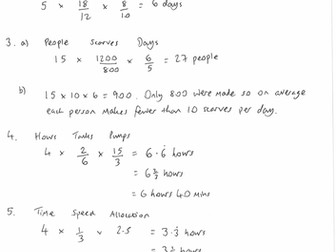 5 × 18/12 × 8/10 = 6 days
3. a) People Scarves Days
15 × 1200/800 × 6/5 = 27 people
b) 15 × 10 × 6 = 900. Only 800 were made so on average
each person makes fewer than 10 scarves per day.
4. Hours Tanks Pumps
4 × 2/6 × 15/3 = 6.6̇ hours
= 6 2/3 hours
= 6 hours 40 mins
5. Time Speed Allocation
4 × 1/3 × 2.5 = 3.3̇ hours
= 3 1/3 hours